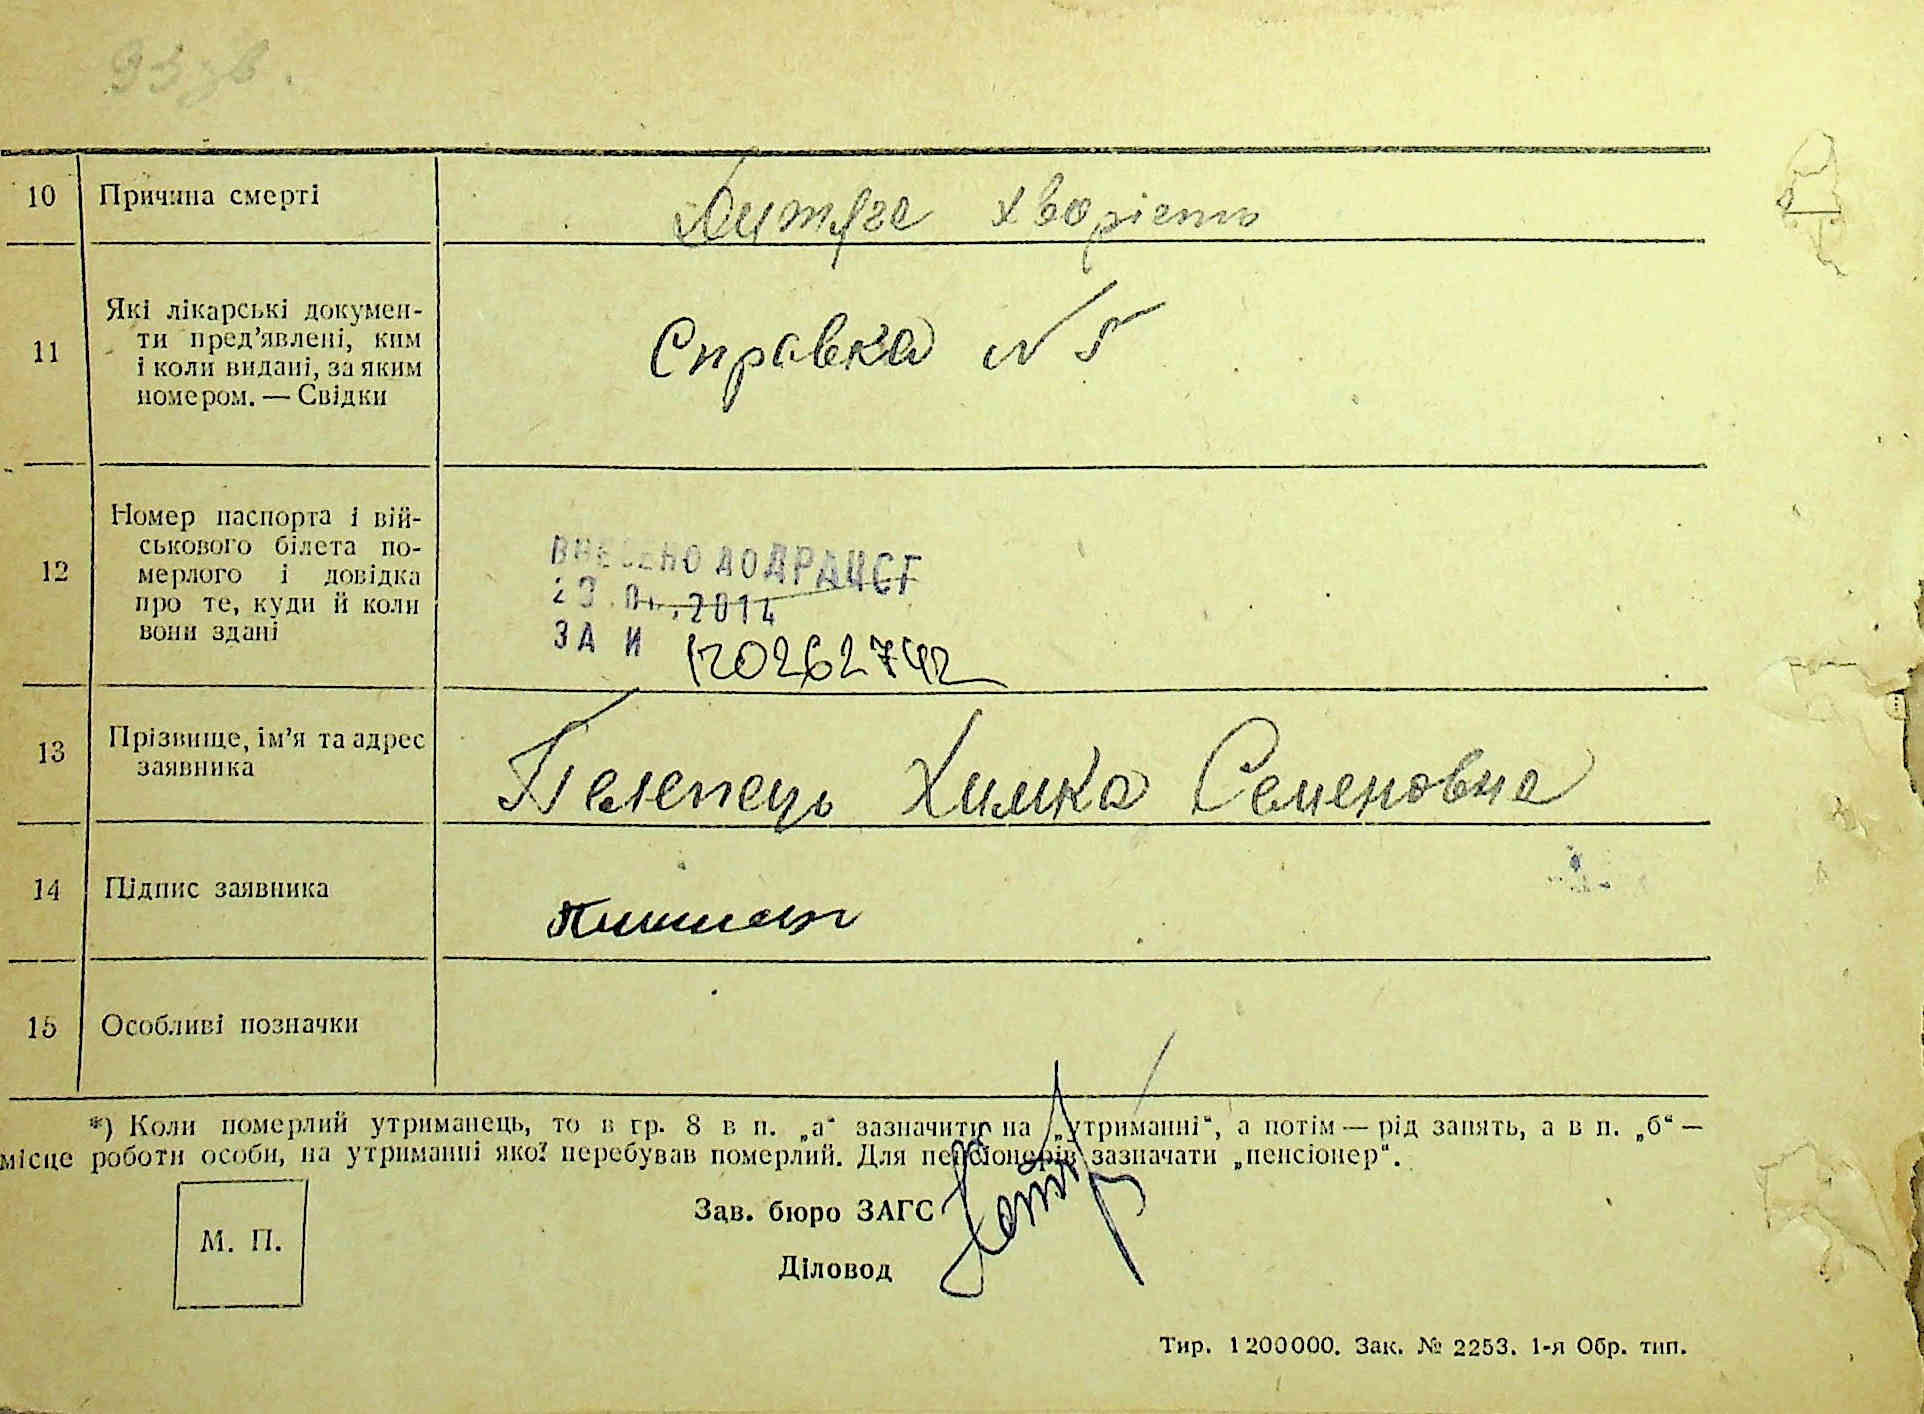 10 Причина смерті
хворість
11 Які лікарські докумен-
ти пред’явлені, ким
і коли видані, за яким
номером. — Свідки
Справка N 5
12 Номер паспорта і вій-
ськового білета по-
мерлого і довідка
про те, куди й коли
вони здані
ВНЕСЕНО ДО ДРАЦСГ
2014
ЗА И 120262742
13 Прізвище, ім’я та адрес
заявника
Химка Семеновна
14 Підпис заявника
15 Особливі позначки
*) Коли померлий утриманець, то в гр. 8 в п. „а“ зазначити на „утриманні“, а потім — рід занять, а в п. „б“ —
місце роботи особи, на утриманні якої перебував померлий. Для пенсіонерів зазначати „пенсіонер“.
М. П.
Зав. бюро ЗАГС
Діловод
Тир. 1200000. Зак. № 2253. 1-я Обр. тип.